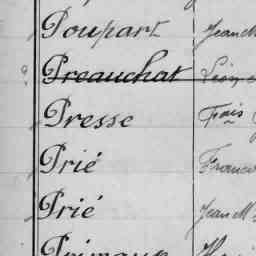 Poupart Jean M
Preauchat Léon
Presse Fçois
Prié Franc
Prié Jean M